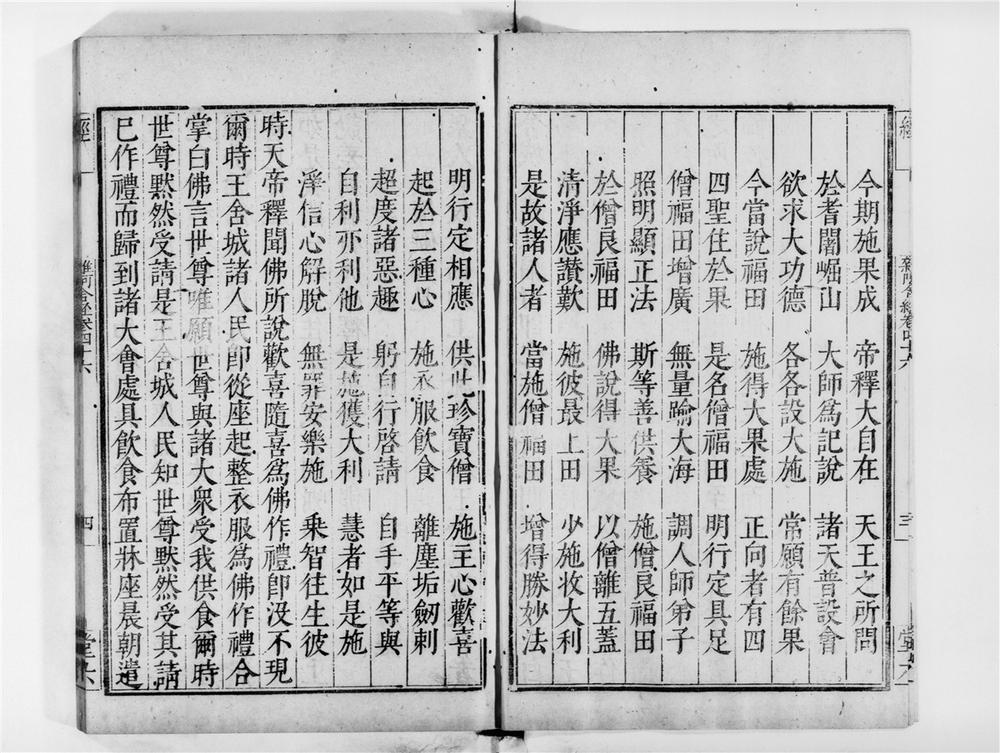 今期施果成　帝釋大自在　天王之所問
於耆闍崛山　大師爲記說　諸天普設會
欲求大功德　各各設大施　常願有餘果
今當說福田　施得大果處　正向者有四
四聖住於果　是名僧福田　明行定具足
僧福田增廣　無量踰大海　調人師弟子
照明顯正法　斯等善供養　施僧良福田
於僧良福田　佛說得大果　以僧離五蓋
清淨應讚歎　施彼最上田　少施收大利
是故諸人者　當施僧福田　增得勝妙法
明行定相應　供此珍寶僧　施主心歡喜
起於三種心　施衣服飲食　離塵垢劒刺
超度諸惡趣　躬自行啓請　自手平等與
自利亦利他　是施獲大利　慧者如是施
淨信心解脫　無罪安樂施　乘智往生彼
時天帝釋聞佛所說歡喜隨喜爲佛作禮卽沒不現
爾時王舍城諸人民卽從座起整衣服爲佛作禮合
掌白佛言世尊唯願世尊與諸大衆受我供食爾時
世尊默然受請是王舍城人民知世尊默然受其請
已作禮而歸到諸大會處具飲食布置牀座晨朝遣
雜阿含經卷四十六
三
雜阿含經卷四十六
四